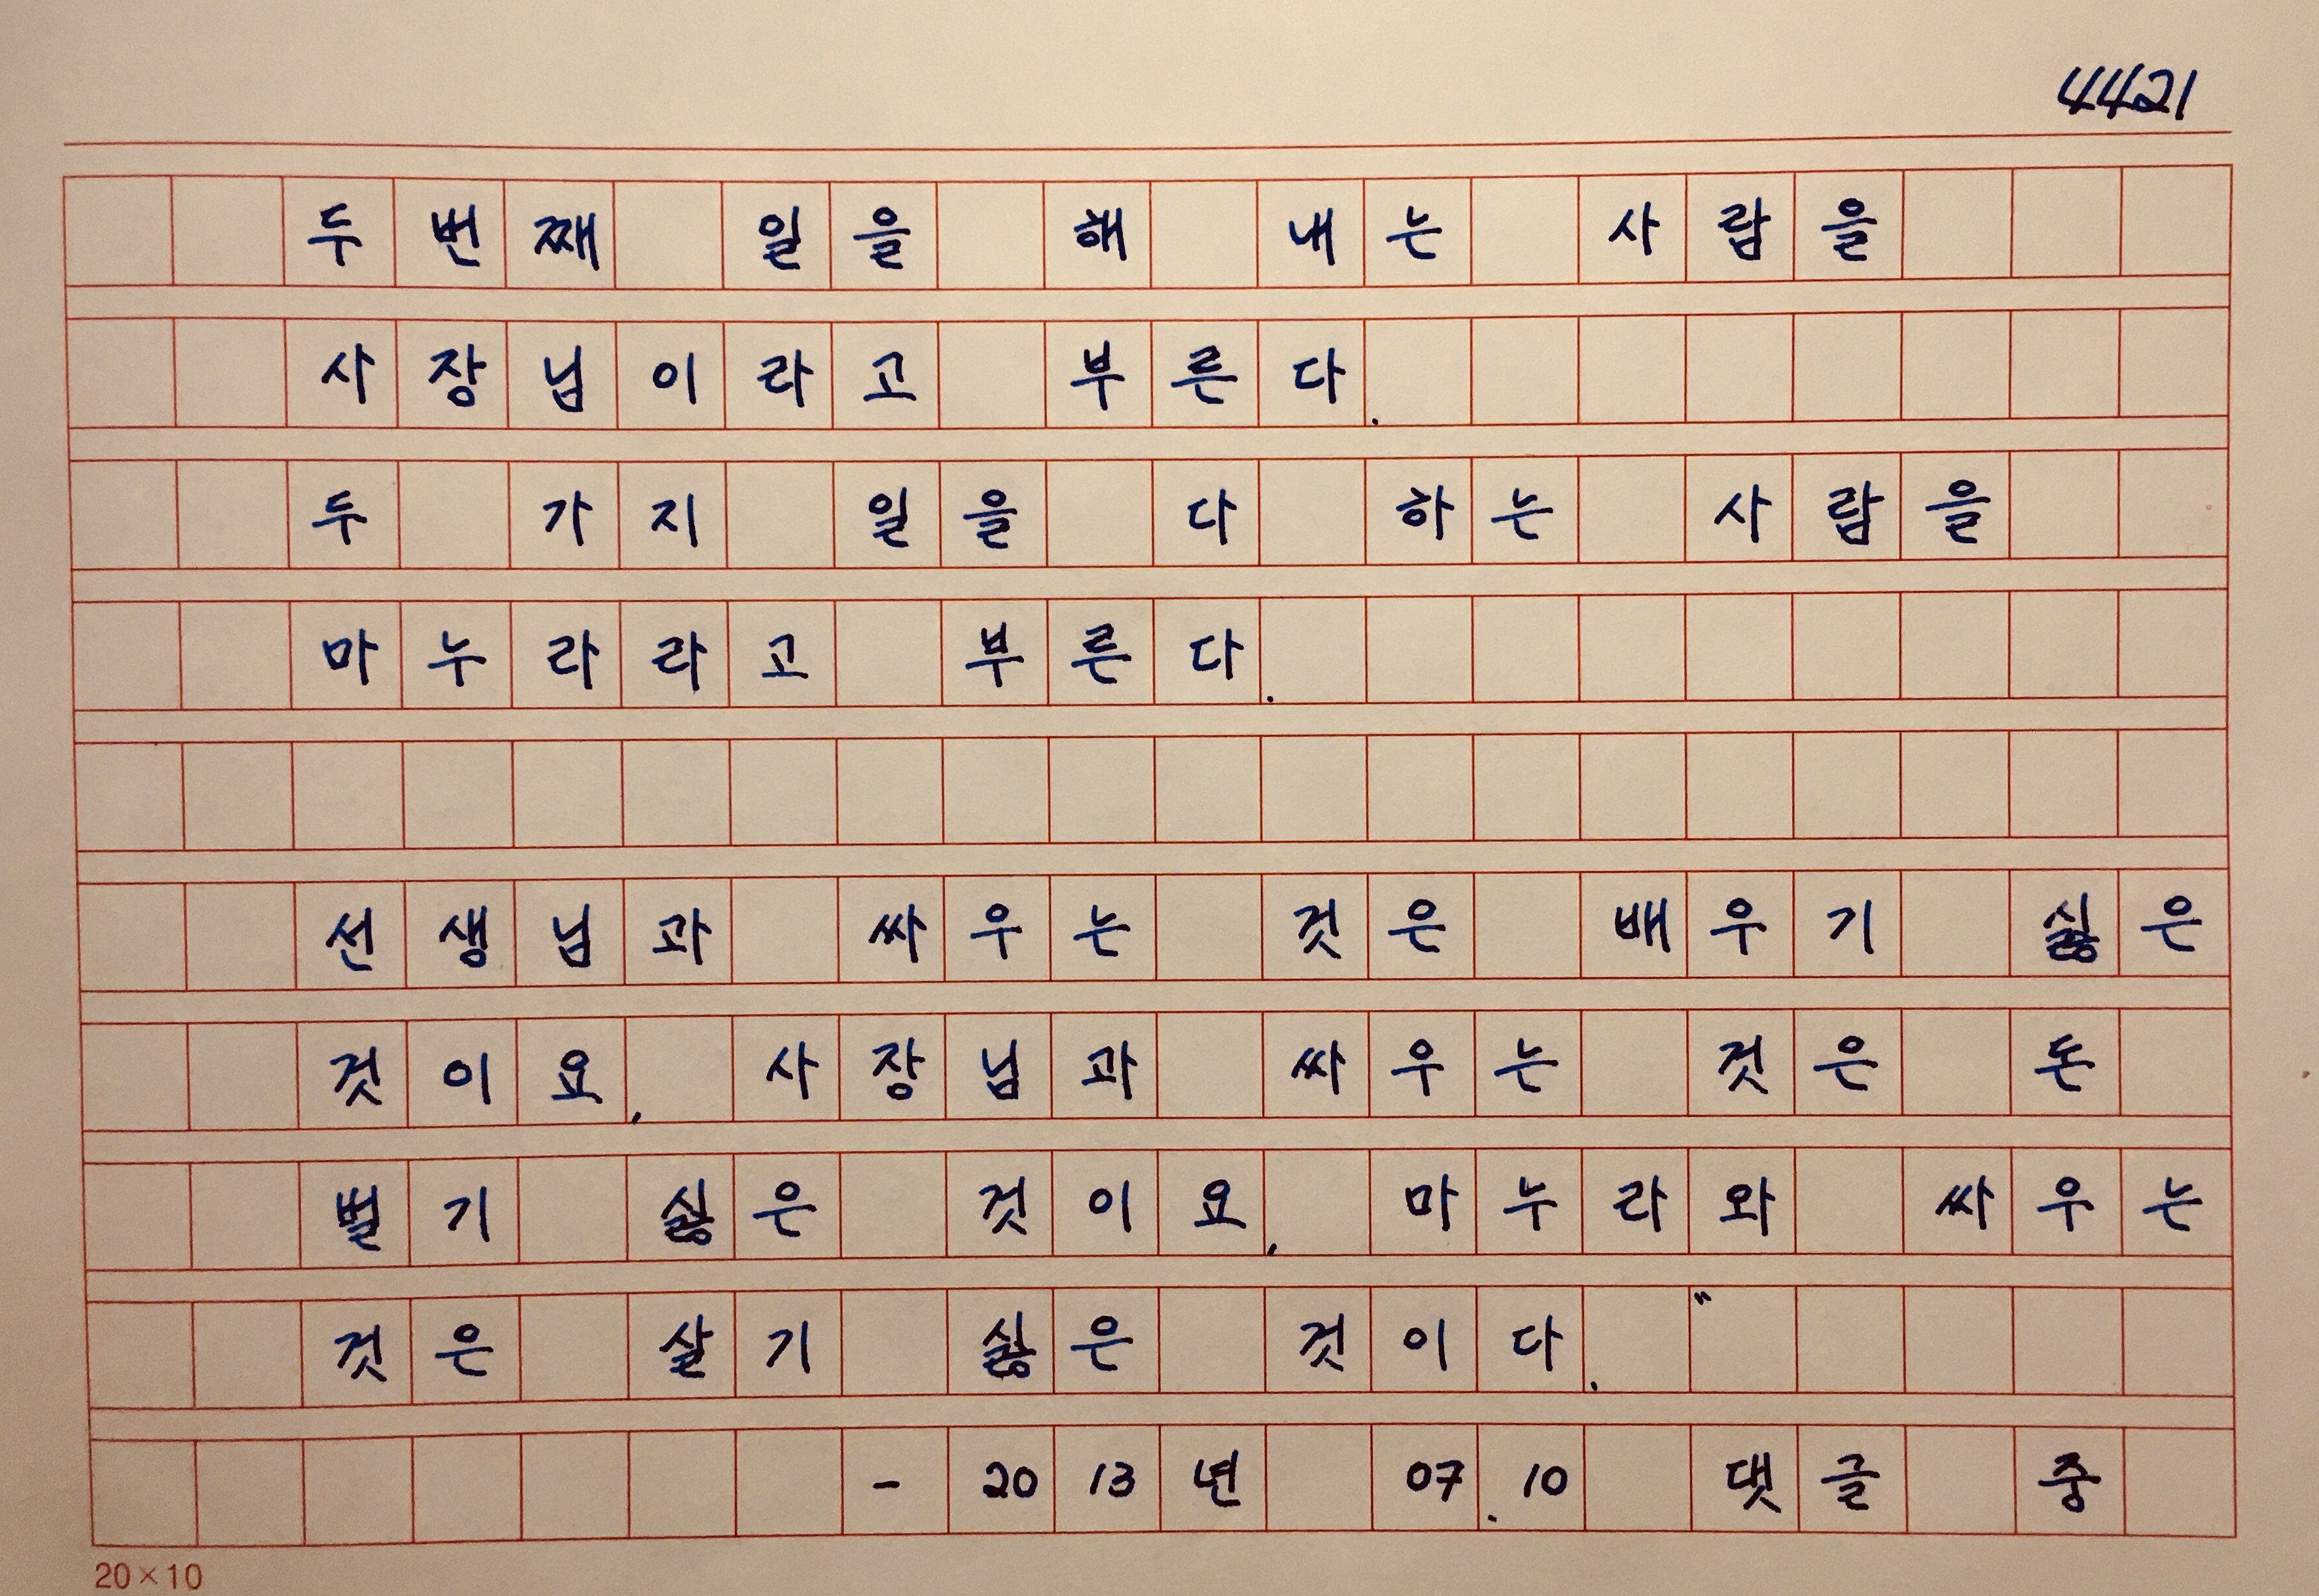 4421
두번째 일을 해 내는 사람을
사장님이라고 부른다.
두 가지 일을 다 하는 사람을
마누라라고 부른다.
선생님과 싸우는 것은 배우기 싫은
것이요, 사장님과 싸우는 것은 돈
벌기 싫은 것이요, 마누라와 싸우는
것은 살기 싫은 것이다. "
- 2013년 07.10 댓글 중
20×10